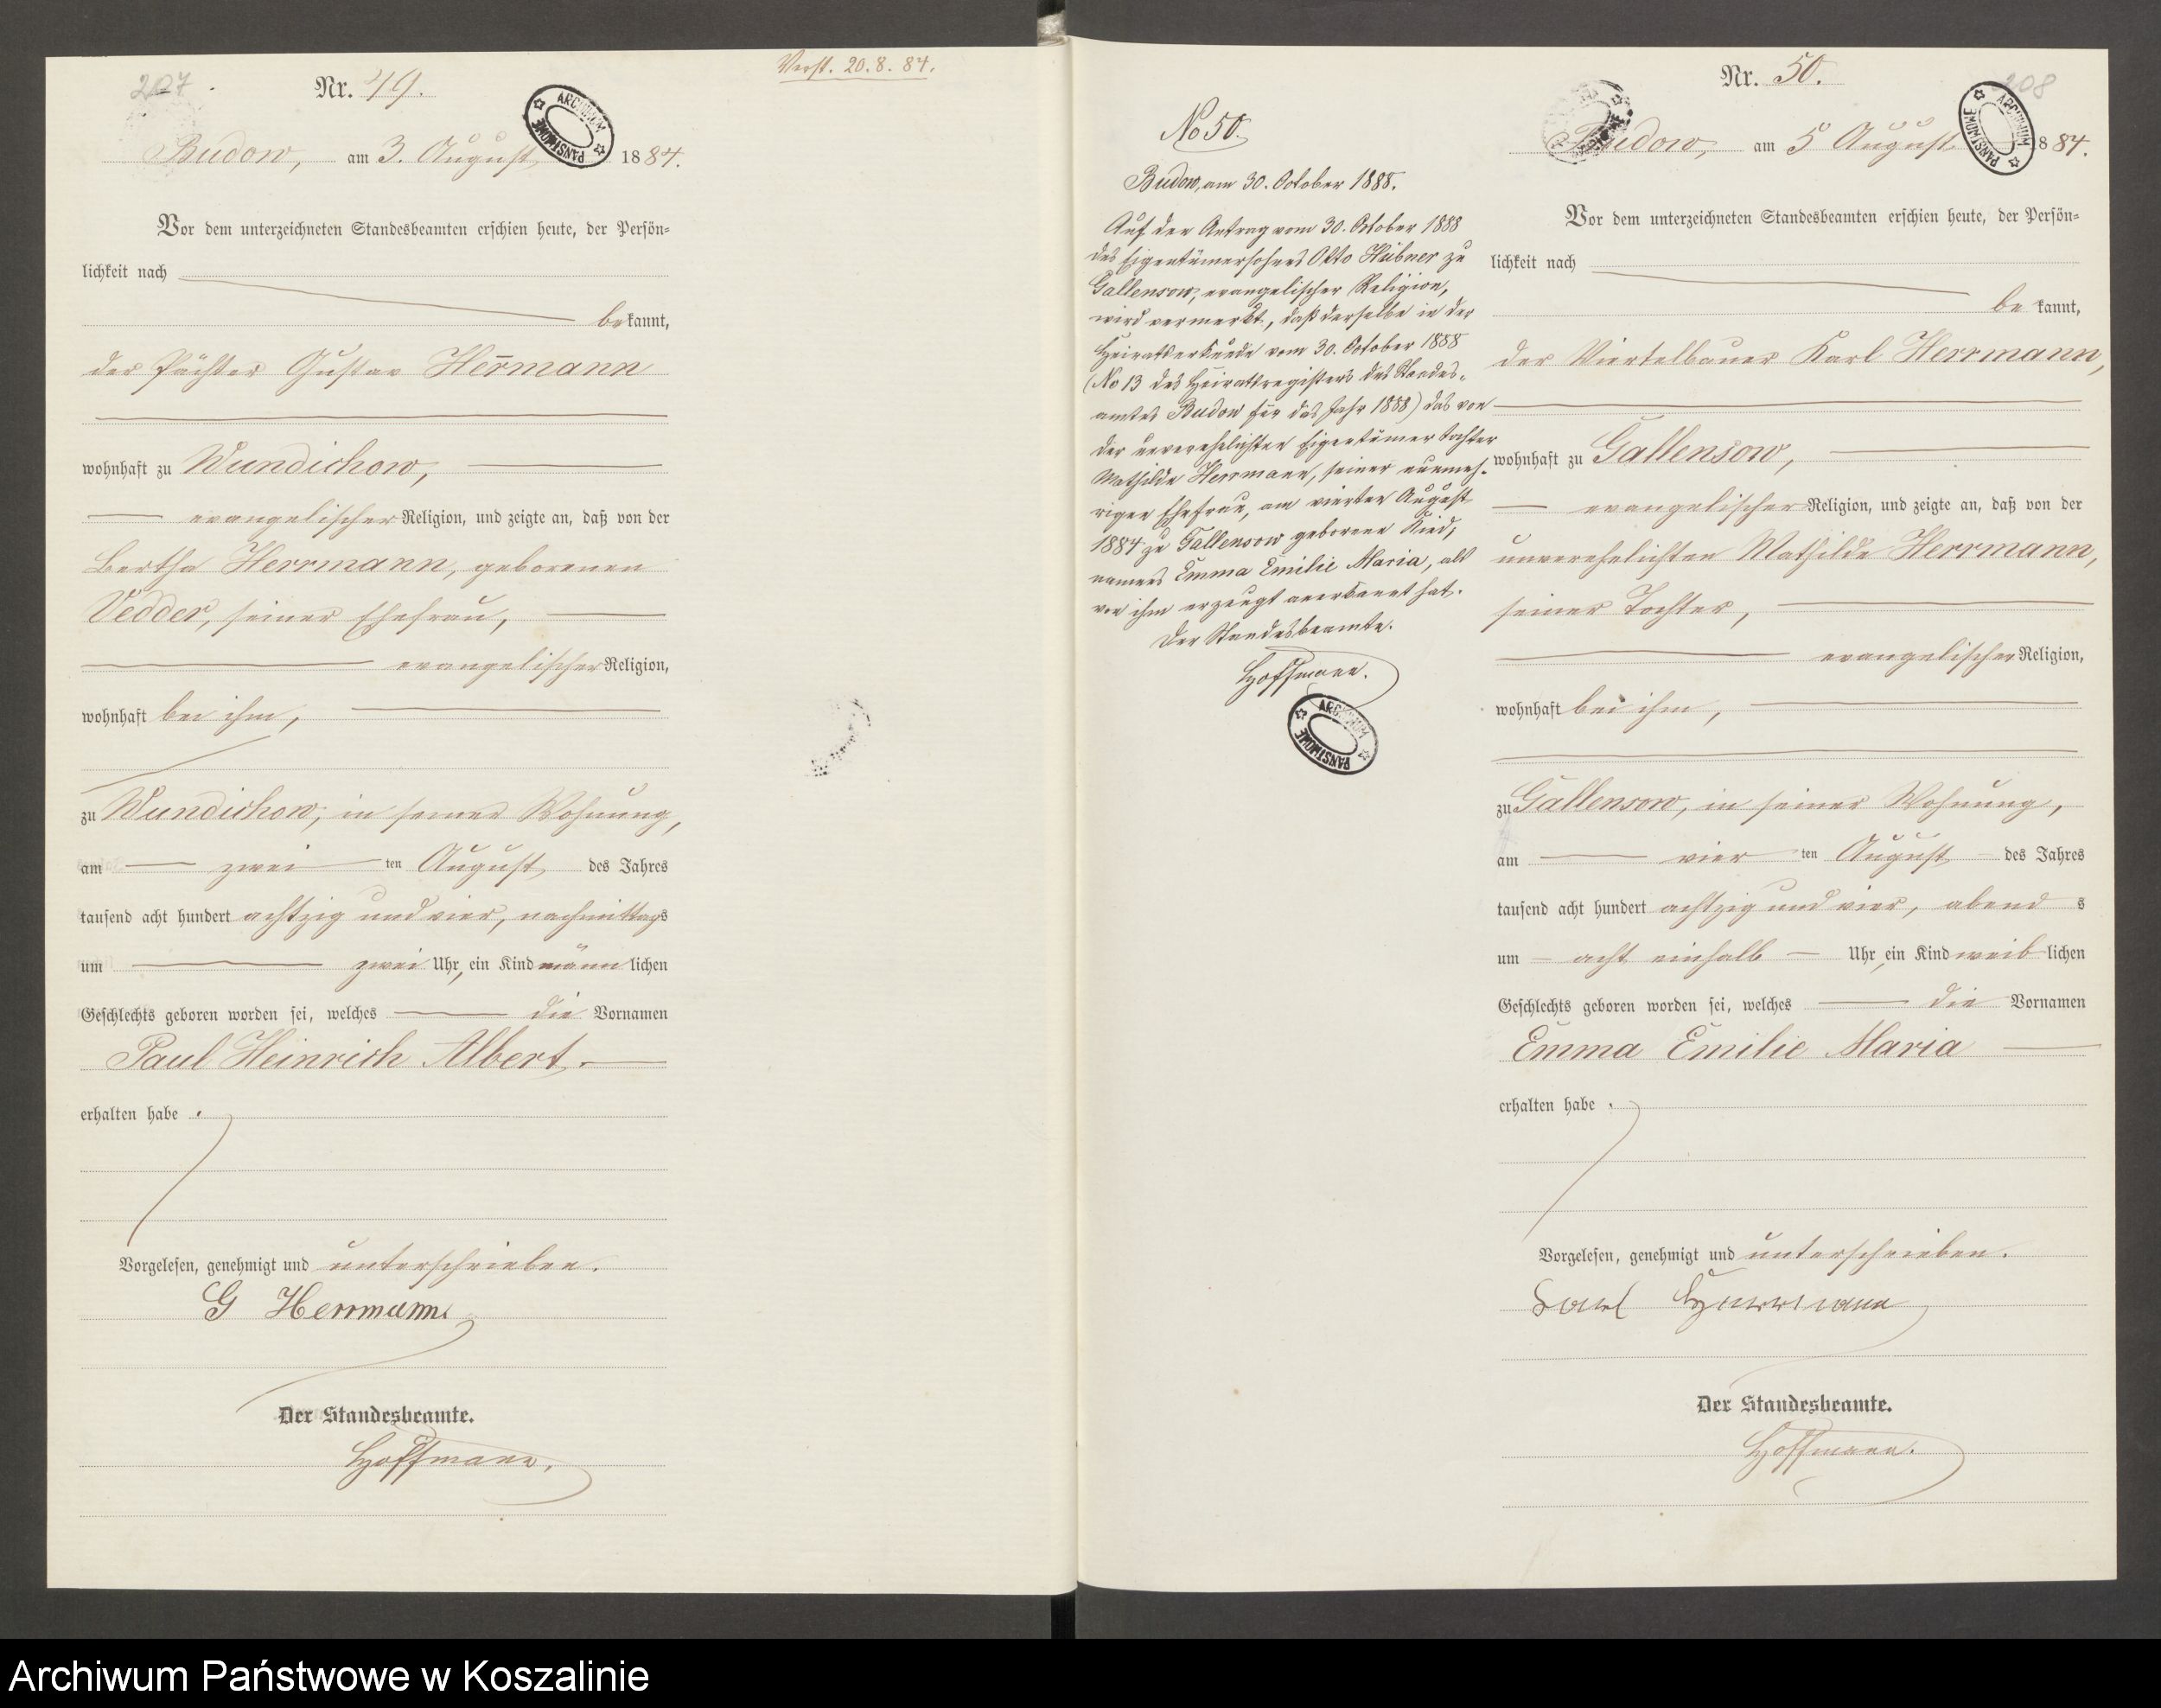 207
Nr. 49.
Verst. 20.8.84.
ARCHIWUM PAŃSTWOWE
Budow, am 3. August 1884.
Vor dem unterzeichneten Standesbeamten erschien heute, der Persön-
lichkeit nach
bekannt,
der Pächter Gustav Herrmann
wohnhaft zu Wundichow,
evangelischer Religion, und zeigte an, daß von der
Bertha Herrmann, geborenen
Vedder, seiner Ehefrau,
evangelischer Religion,
wohnhaft bei ihm,
zu Wundichow, in seiner Wohnung,
am zweiten August des Jahres
tausend acht hundert achtzig und vier, nachmittags
um zwei Uhr, ein Kind männlichen
Geschlechts geboren worden sei, welches die Vornamen
Paul Heinrich Albert.
erhalten habe.
Vorgelesen, genehmigt und unterschrieben.
G Herrmann
Der Standesbeamte.
Hoffmann.
No 50.
Budow, am 30. October 1888.
Auf den Antrag vom 30. October 1888
des Eigentümersohnes Otto Hübner zu
Gallensow, evangelischer Religion,
wird vermerkt, daß derselbe in der
Heiratsurkunde vom 30. October 1888
(No 13 des Heiratsregisters des Standes-
amtes Budow für das Jahr 1888) das von
der unverehelichten Eigentümertochter
Mathilde Herrmann, seiner nunmeh-
rigen Ehefrau, am vierten August
1884 zu Gallensow geborene Kind,
namens Emma Emilie Maria, als
von ihm erzeugt anerkannt hat.
Der Standesbeamte.
Hoffmann.
ARCHIWUM PAŃSTWOWE
208
Nr. 50.
ARCHIWUM PAŃSTWOWE
Budow, am 5 August 1884.
Vor dem unterzeichneten Standesbeamten erschien heute, der Persön-
lichkeit nach
bekannt,
der Viertelbauer Karl Herrmann,
wohnhaft zu Gallensow,
evangelischer Religion, und zeigte an, daß von der
unverehelichten Mathilde Herrmann,
seiner Tochter,
evangelischer Religion,
wohnhaft bei ihm,
zu Gallensow, in seiner Wohnung,
am vierten August des Jahres
tausend acht hundert achtzig und vier, abends
um acht einhalb Uhr, ein Kind weiblichen
Geschlechts geboren worden sei, welches die Vornamen
Emma Emilie Maria
erhalten habe.
Vorgelesen, genehmigt und unterschrieben.
Karl Herrmann
Der Standesbeamte.
Hoffmann.
Archiwum Państwowe w Koszalinie